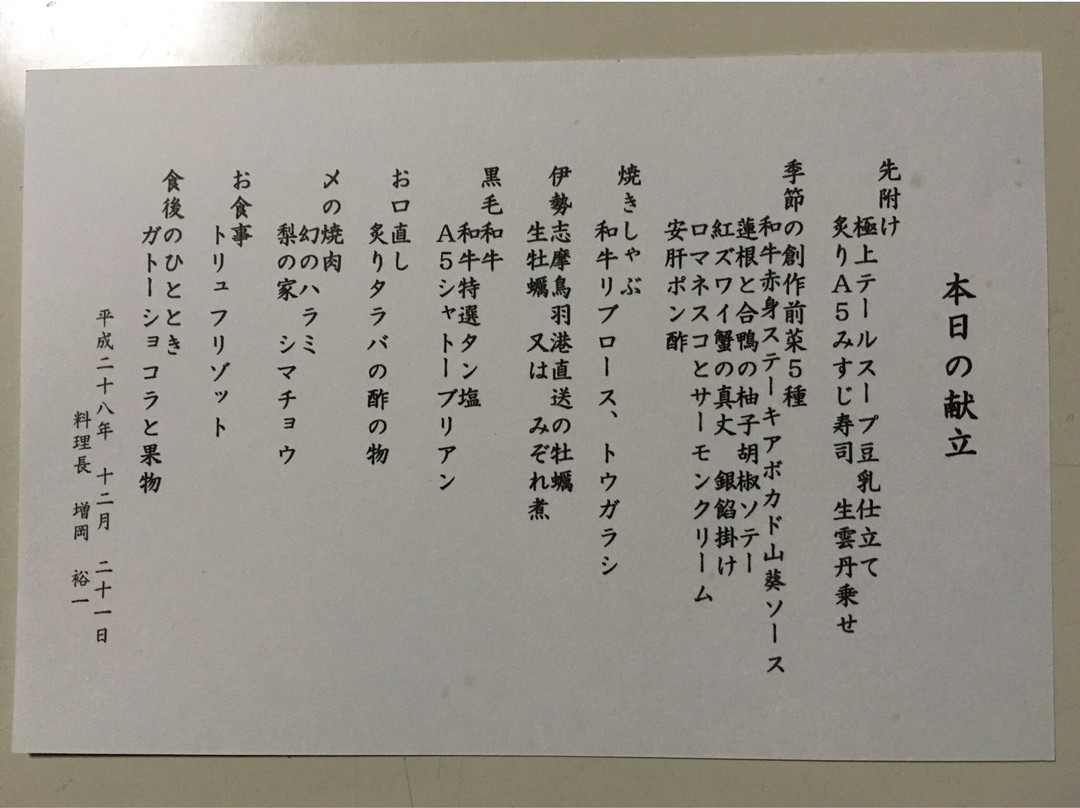 本日の献立
先附け
極上テールスープ豆乳仕立て
炙りA5みすじ寿司　生雲丹乗せ
季節の創作前菜5種
和牛赤身ステーキアボカド山葵ソース
蓮根と合鴨の柚子胡椒ソテー
紅ズワイ蟹の真丈　銀餡掛け
ロマネスコとサーモンクリーム
安肝ポン酢
焼きしゃぶ
和牛リブロース、トウガラシ
伊勢志摩鳥羽港直送の牡蠣
生牡蠣　又は　みぞれ煮
黒毛和牛
和牛特選タン塩
A5シャトーブリアン
お口直し
炙りタラバの酢の物
〆の焼肉
幻のハラミ
梨の家　シマチョウ
お食事
トリュフリゾット
食後のひととき
ガトーショコラと果物
平成二十八年　十二月　二十一日
料理長　増岡　裕一